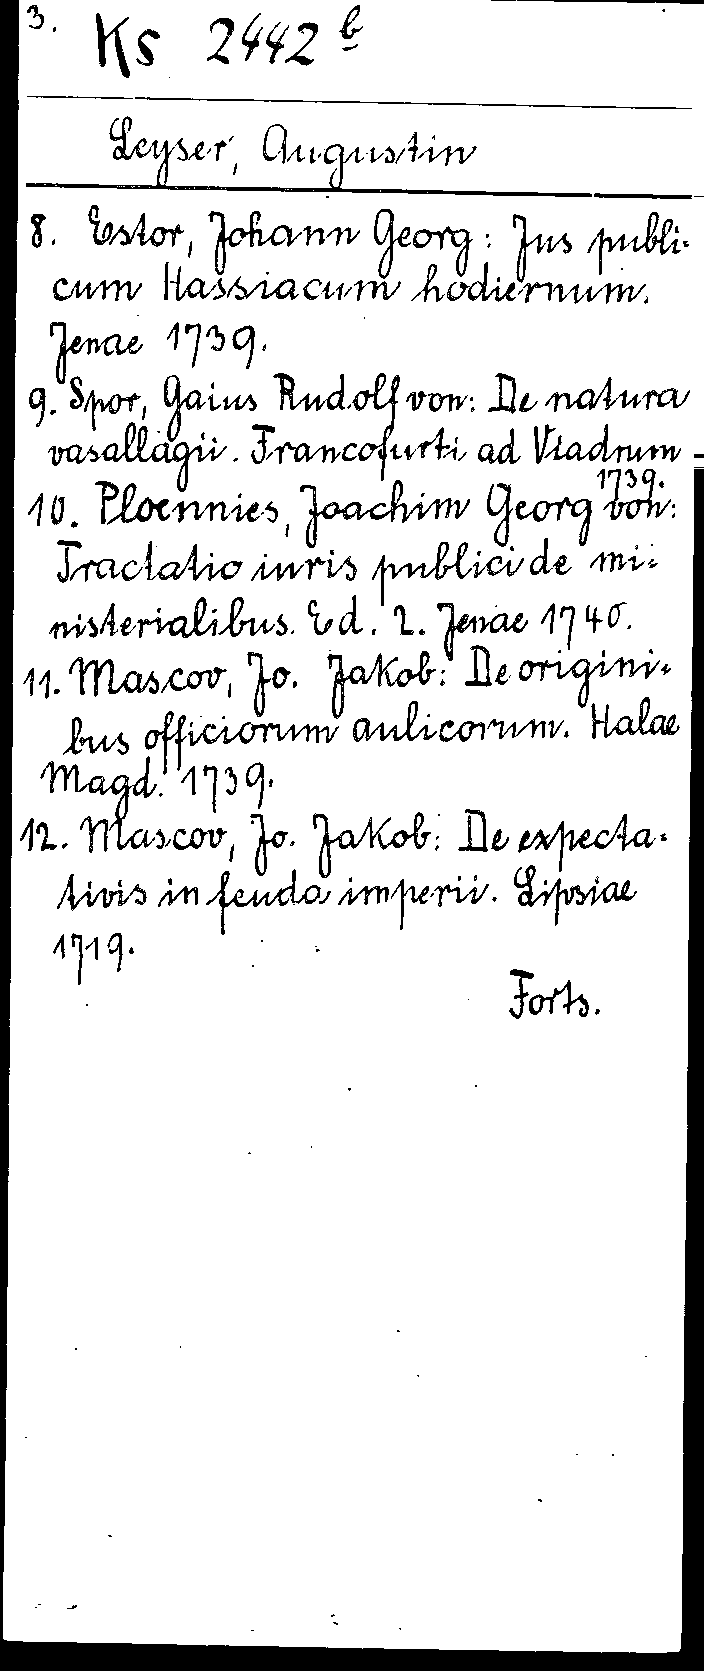 3.
Ks 2442 b
Leyser, Augustin
8. Estor, Johann Georg: Jus publi-
cum Hassiacum hodiernum.
Jenae 1739.
9. Spor, Gaius Rudolf von: De natura
vasallagii. Francofurti ad Viadrum
1739.
10. Ploennies, Joachim Georg von:
Tractatio iuris publici de mi-
nisterialibus. Ed. 2. Jenae 1740.
11. Mascov, Jo. Jakob: De origini-
bus officiorum aulicorum. Halae
Magd. 1739.
12. Mascov, Jo. Jakob: De expecta-
tivis in feuda imperii. Lipsiae
1719.
Forts.